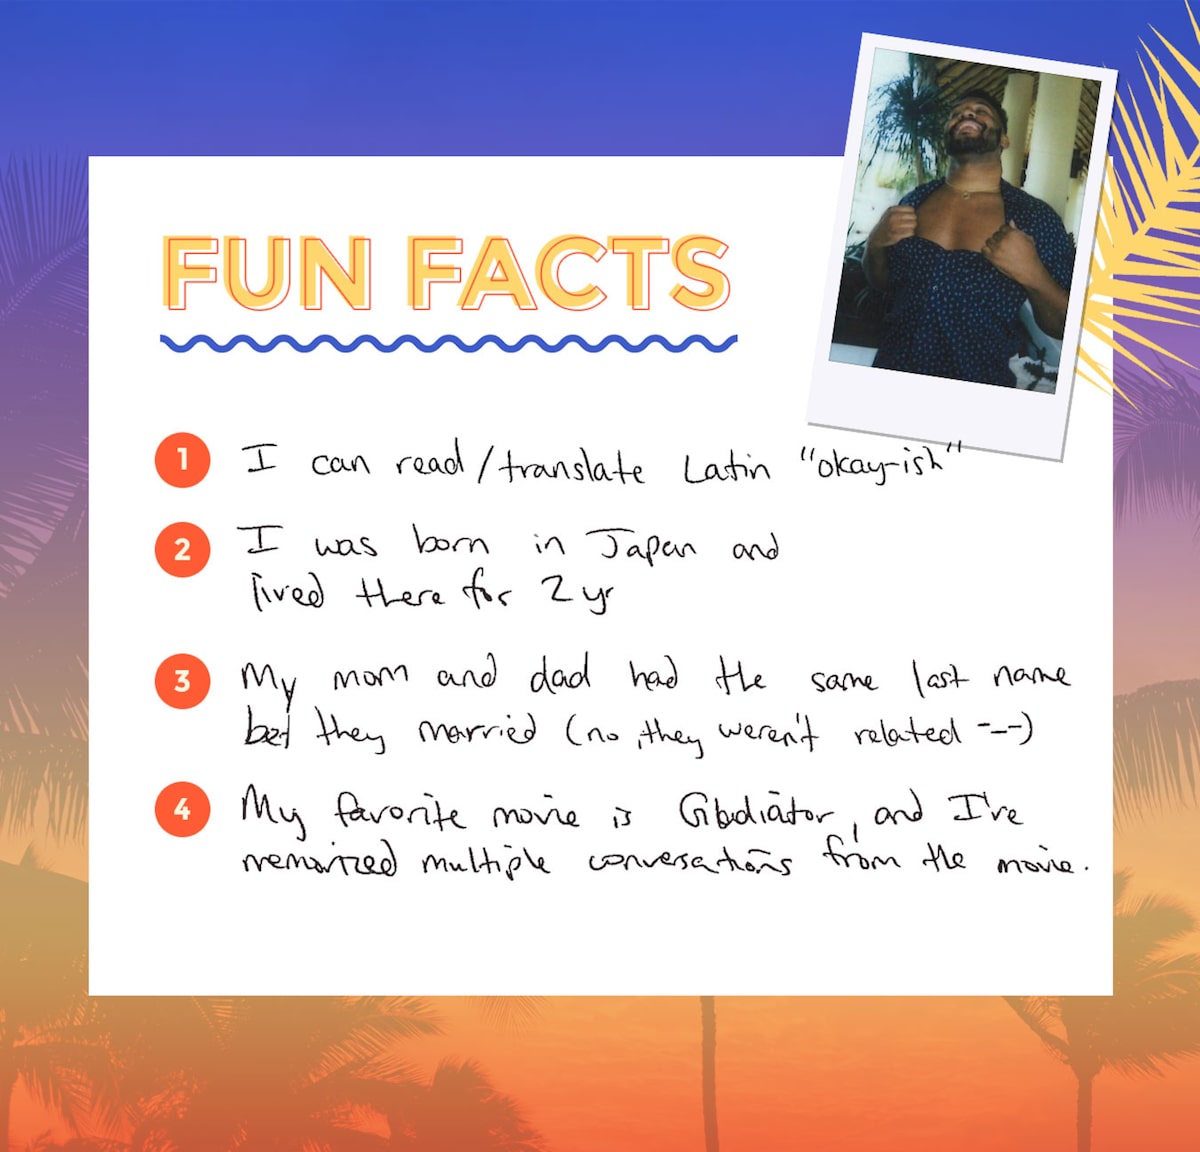 FUN FACTS
1 I can read/translate Latin "okay-ish"
2 I was born in Japan and
lived there for 2 yr
3 My mom and dad had the same last name
be4 they married (no, they weren't related -_-)
4 My favorite movie is Gladiator, and I've
memorized multiple conversations from the movie.